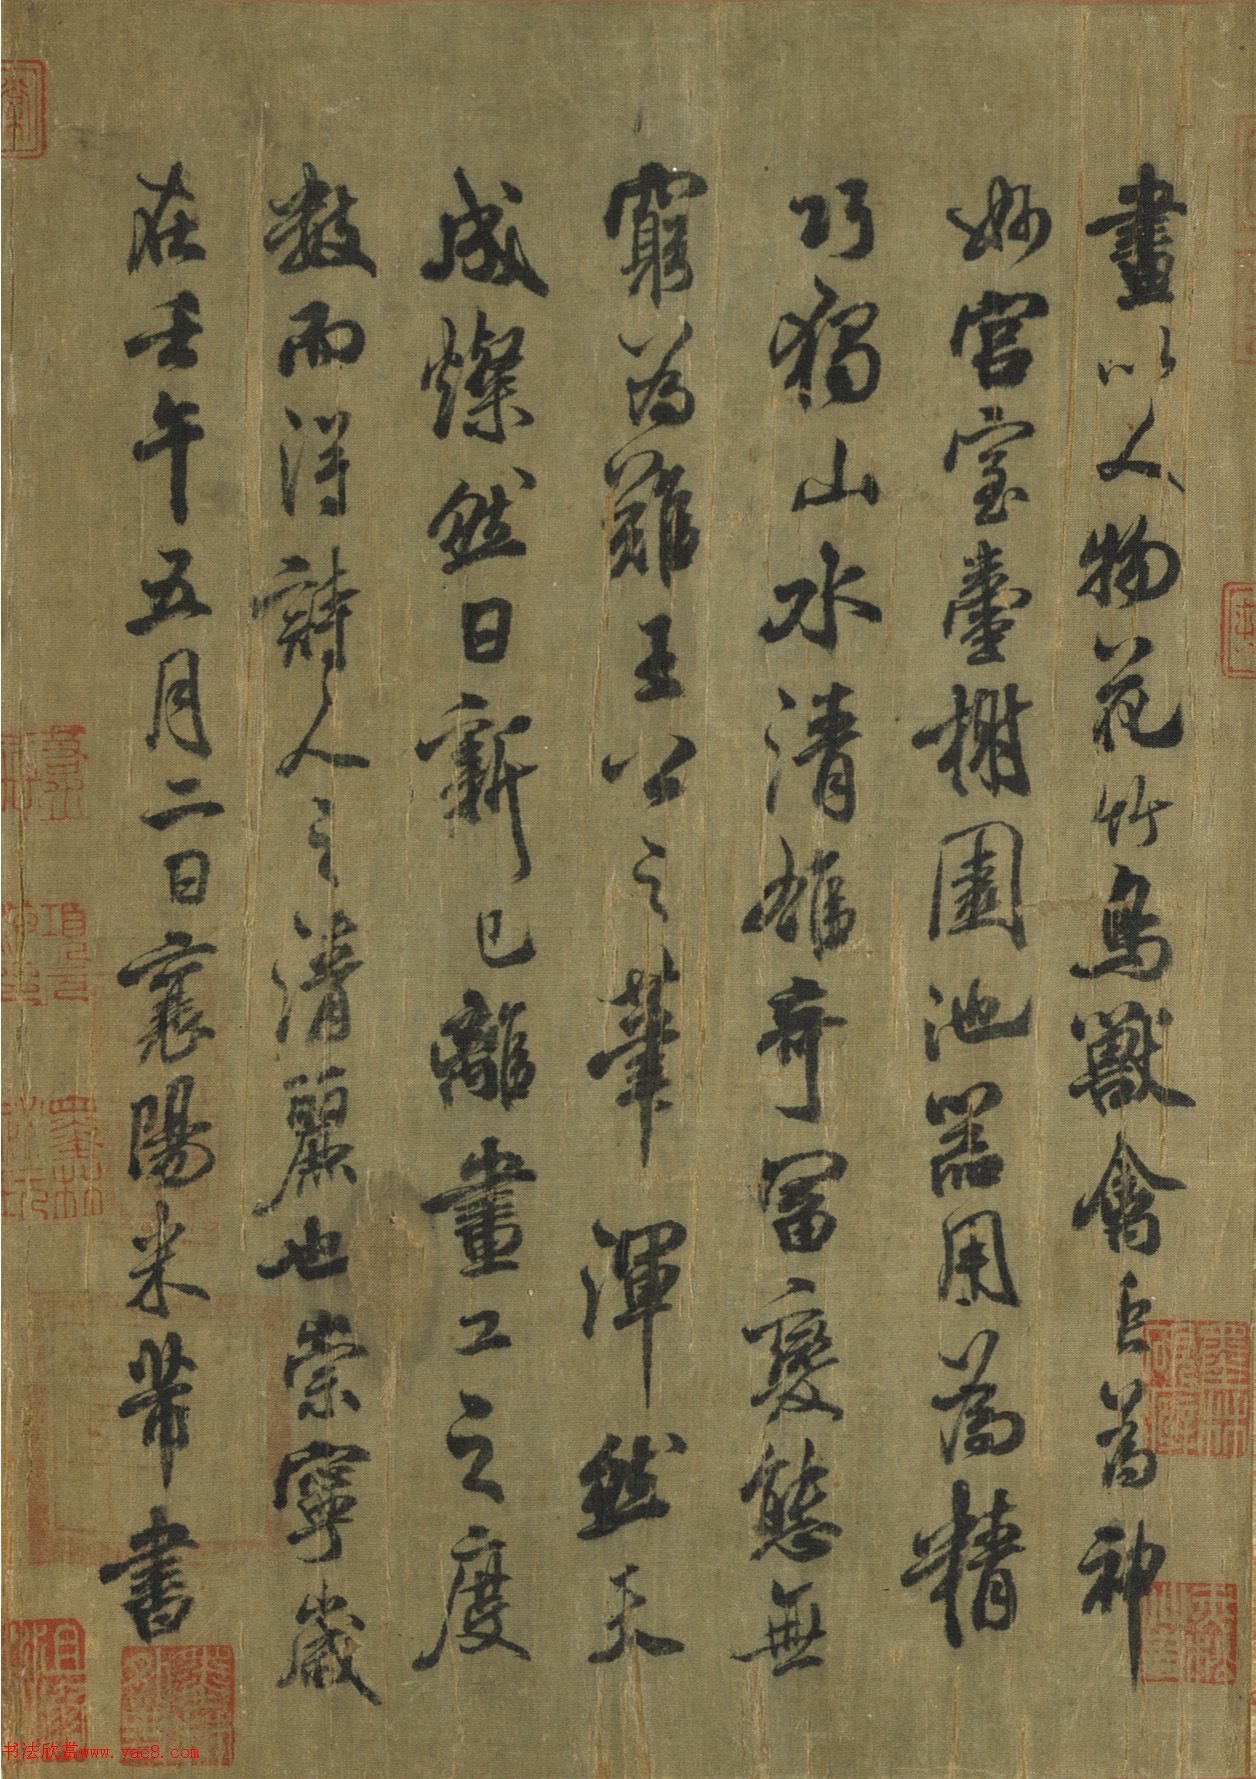 畫以人物花竹鳥獸會之為神
妙宮室臺榭園池器用為精
巧獨山水清雄奇富變態無
窮為難王公之筆渾然天
成燦然日新已離畫工之度
數而得詩人之清麗也崇寧歲
在壬午五月二日襄陽米芾書
书法欣赏www.yac8.com